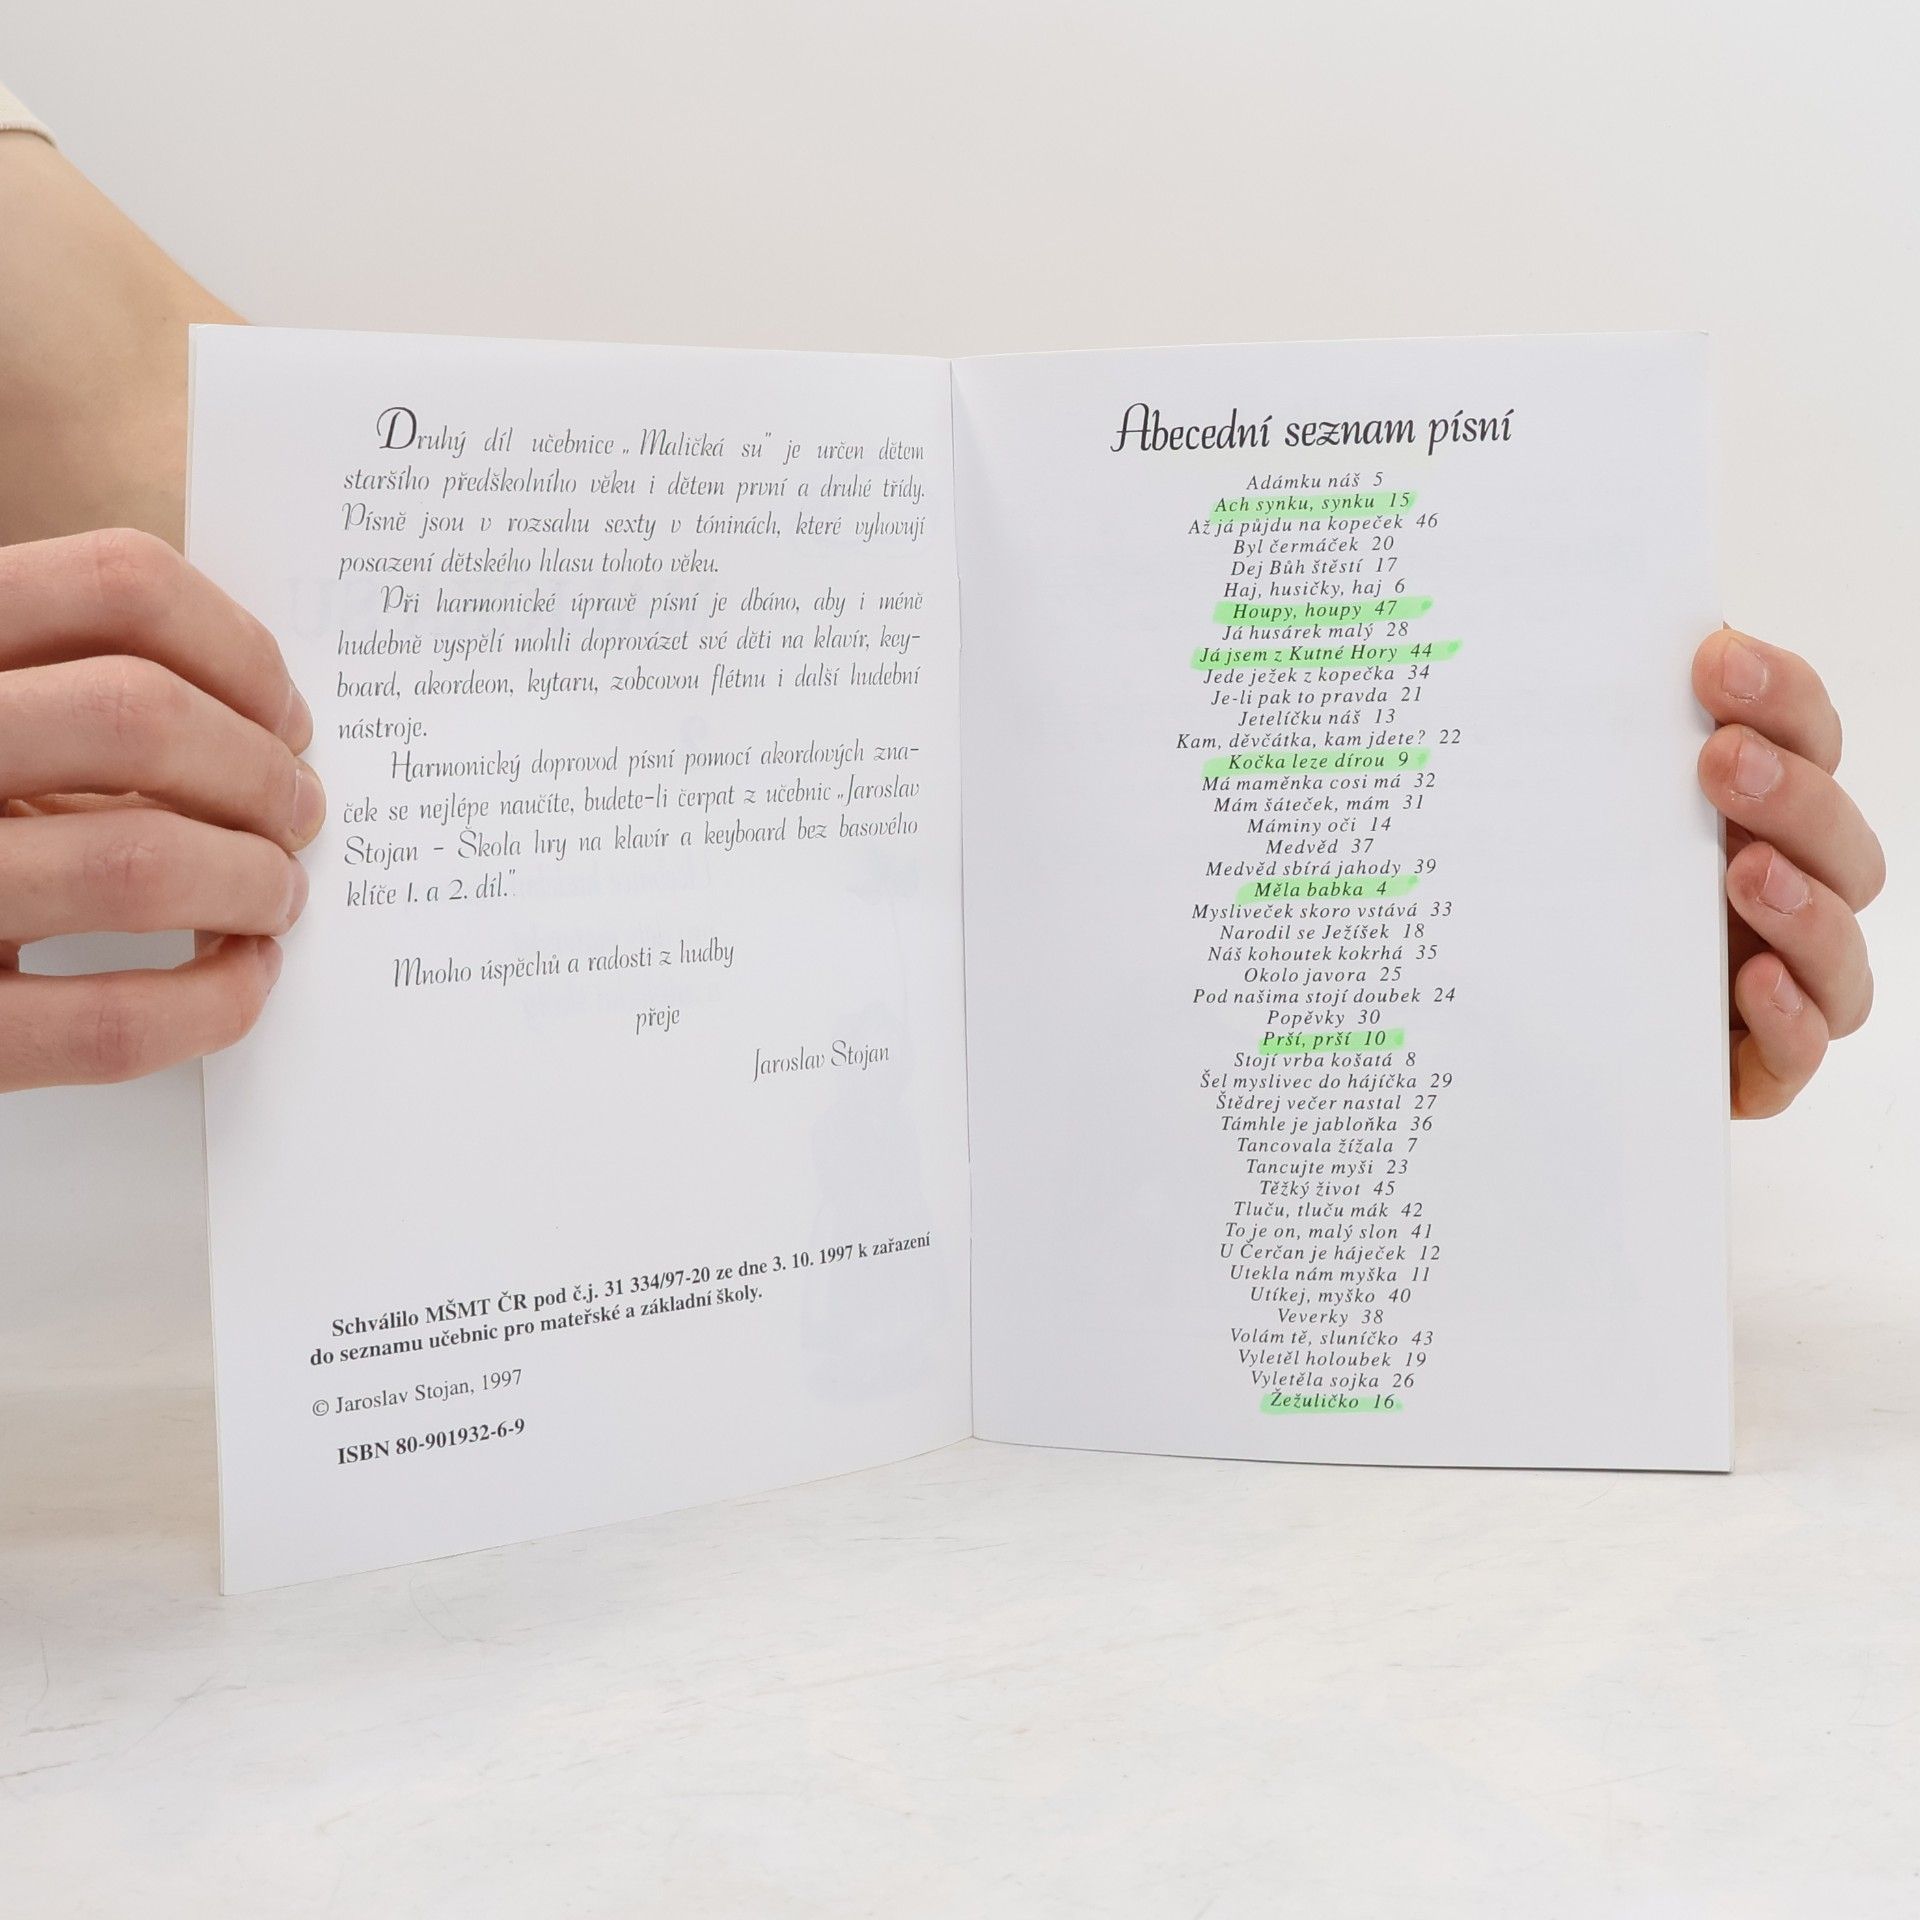 Druhý díl učebnice „Maličká su" je určen dětem
staršího předškolního věku i dětem první a druhé třídy.
Písně jsou v rozsahu sexty v tóninách, které vyhovují
posazení dětského hlasu tohoto věku.
Při harmonické úpravě písní je dbáno, aby i méně
hudebně vyspělí mohli doprovázet své děti na klavír, key-
board, akordeon, kytaru, zobcovou flétnu i další hudební
nástroje.
Harmonický doprovod písní pomocí akordových zna-
ček se nejlépe naučíte, budete-li čerpat z učebnic „Jaroslav
Stojan - Škola hry na klavír a keyboard bez basového
klíče 1. a 2. díl."
Mnoho úspěchů a radosti z hudby
přeje
Jaroslav Stojan
Schválilo MŠMT ČR pod č.j. 31 334/97-20 ze dne 3. 10. 1997 k zařazení
do seznamu učebnic pro mateřské a základní školy.
© Jaroslav Stojan, 1997
ISBN 80-901932-6-9
Abecední seznam písní
Adámku náš 5
Ach synku, synku 15
Až já půjdu na kopeček 46
Byl čermáček 20
Dej Bůh štěstí 17
Haj, husičky, haj 6
Houpy, houpy 47
Já husárek malý 28
Já jsem z Kutné Hory 44
Jede ježek z kopečka 34
Je-li pak to pravda 21
Jetelíčku náš 13
Kam, děvčátka, kam jdete? 22
Kočka leze dírou 9
Má maměnka cosi má 32
Mám šáteček, mám 31
Máminy oči 14
Medvěd 37
Medvěd sbírá jahody 39
Měla babka 4
Mysliveček skoro vstává 33
Narodil se Ježíšek 18
Náš kohoutek kokrhá 35
Okolo javora 25
Pod našima stojí doubek 24
Popěvky 30
Prší, prší 10
Stojí vrba košatá 8
Šel myslivec do hájíčka 29
Štědrej večer nastal 27
Támhle je jabloňka 36
Tancovala žížala 7
Tancujte myši 23
Těžký život 45
Tluču, tluču mák 42
To je on, malý slon 41
U Čerčan je háječek 12
Utekla nám myška 11
Utíkej, myško 40
Veverky 38
Volám tě, sluníčko 43
Vyletěl holoubek 19
Vyletěla sojka 26
Žežuličko 16